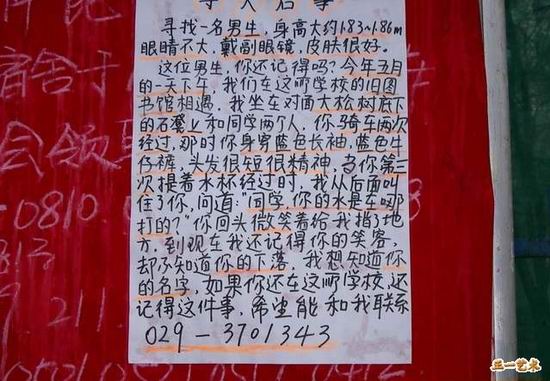 寻人启事
寻找一名男生，身高大约1.83~1.86m
眼睛不大，戴副眼镜，皮肤很好。
这位男生，你还记得吗？今年五月
的一天下午，我们在这所学校的旧图
书馆相遇，我坐在对面大松树底下
的石凳上和同学两个人，你骑车两次
经过，那时你身穿蓝色长袖，蓝色牛
仔裤，头发很短很精神，当你第三
次提着水杯经过时，我从后面叫
住了你，问道："同学，你的水是在哪
打的？"你回头微笑着给我指了地
方，到现在我还记得你的笑容，
却不知道你的下落，我想知道你
的名字，如果你还在这所学校，还
记得这件事，希望能和我联系
029-3701343
宿舍于
会领
0810
211
正一艺术